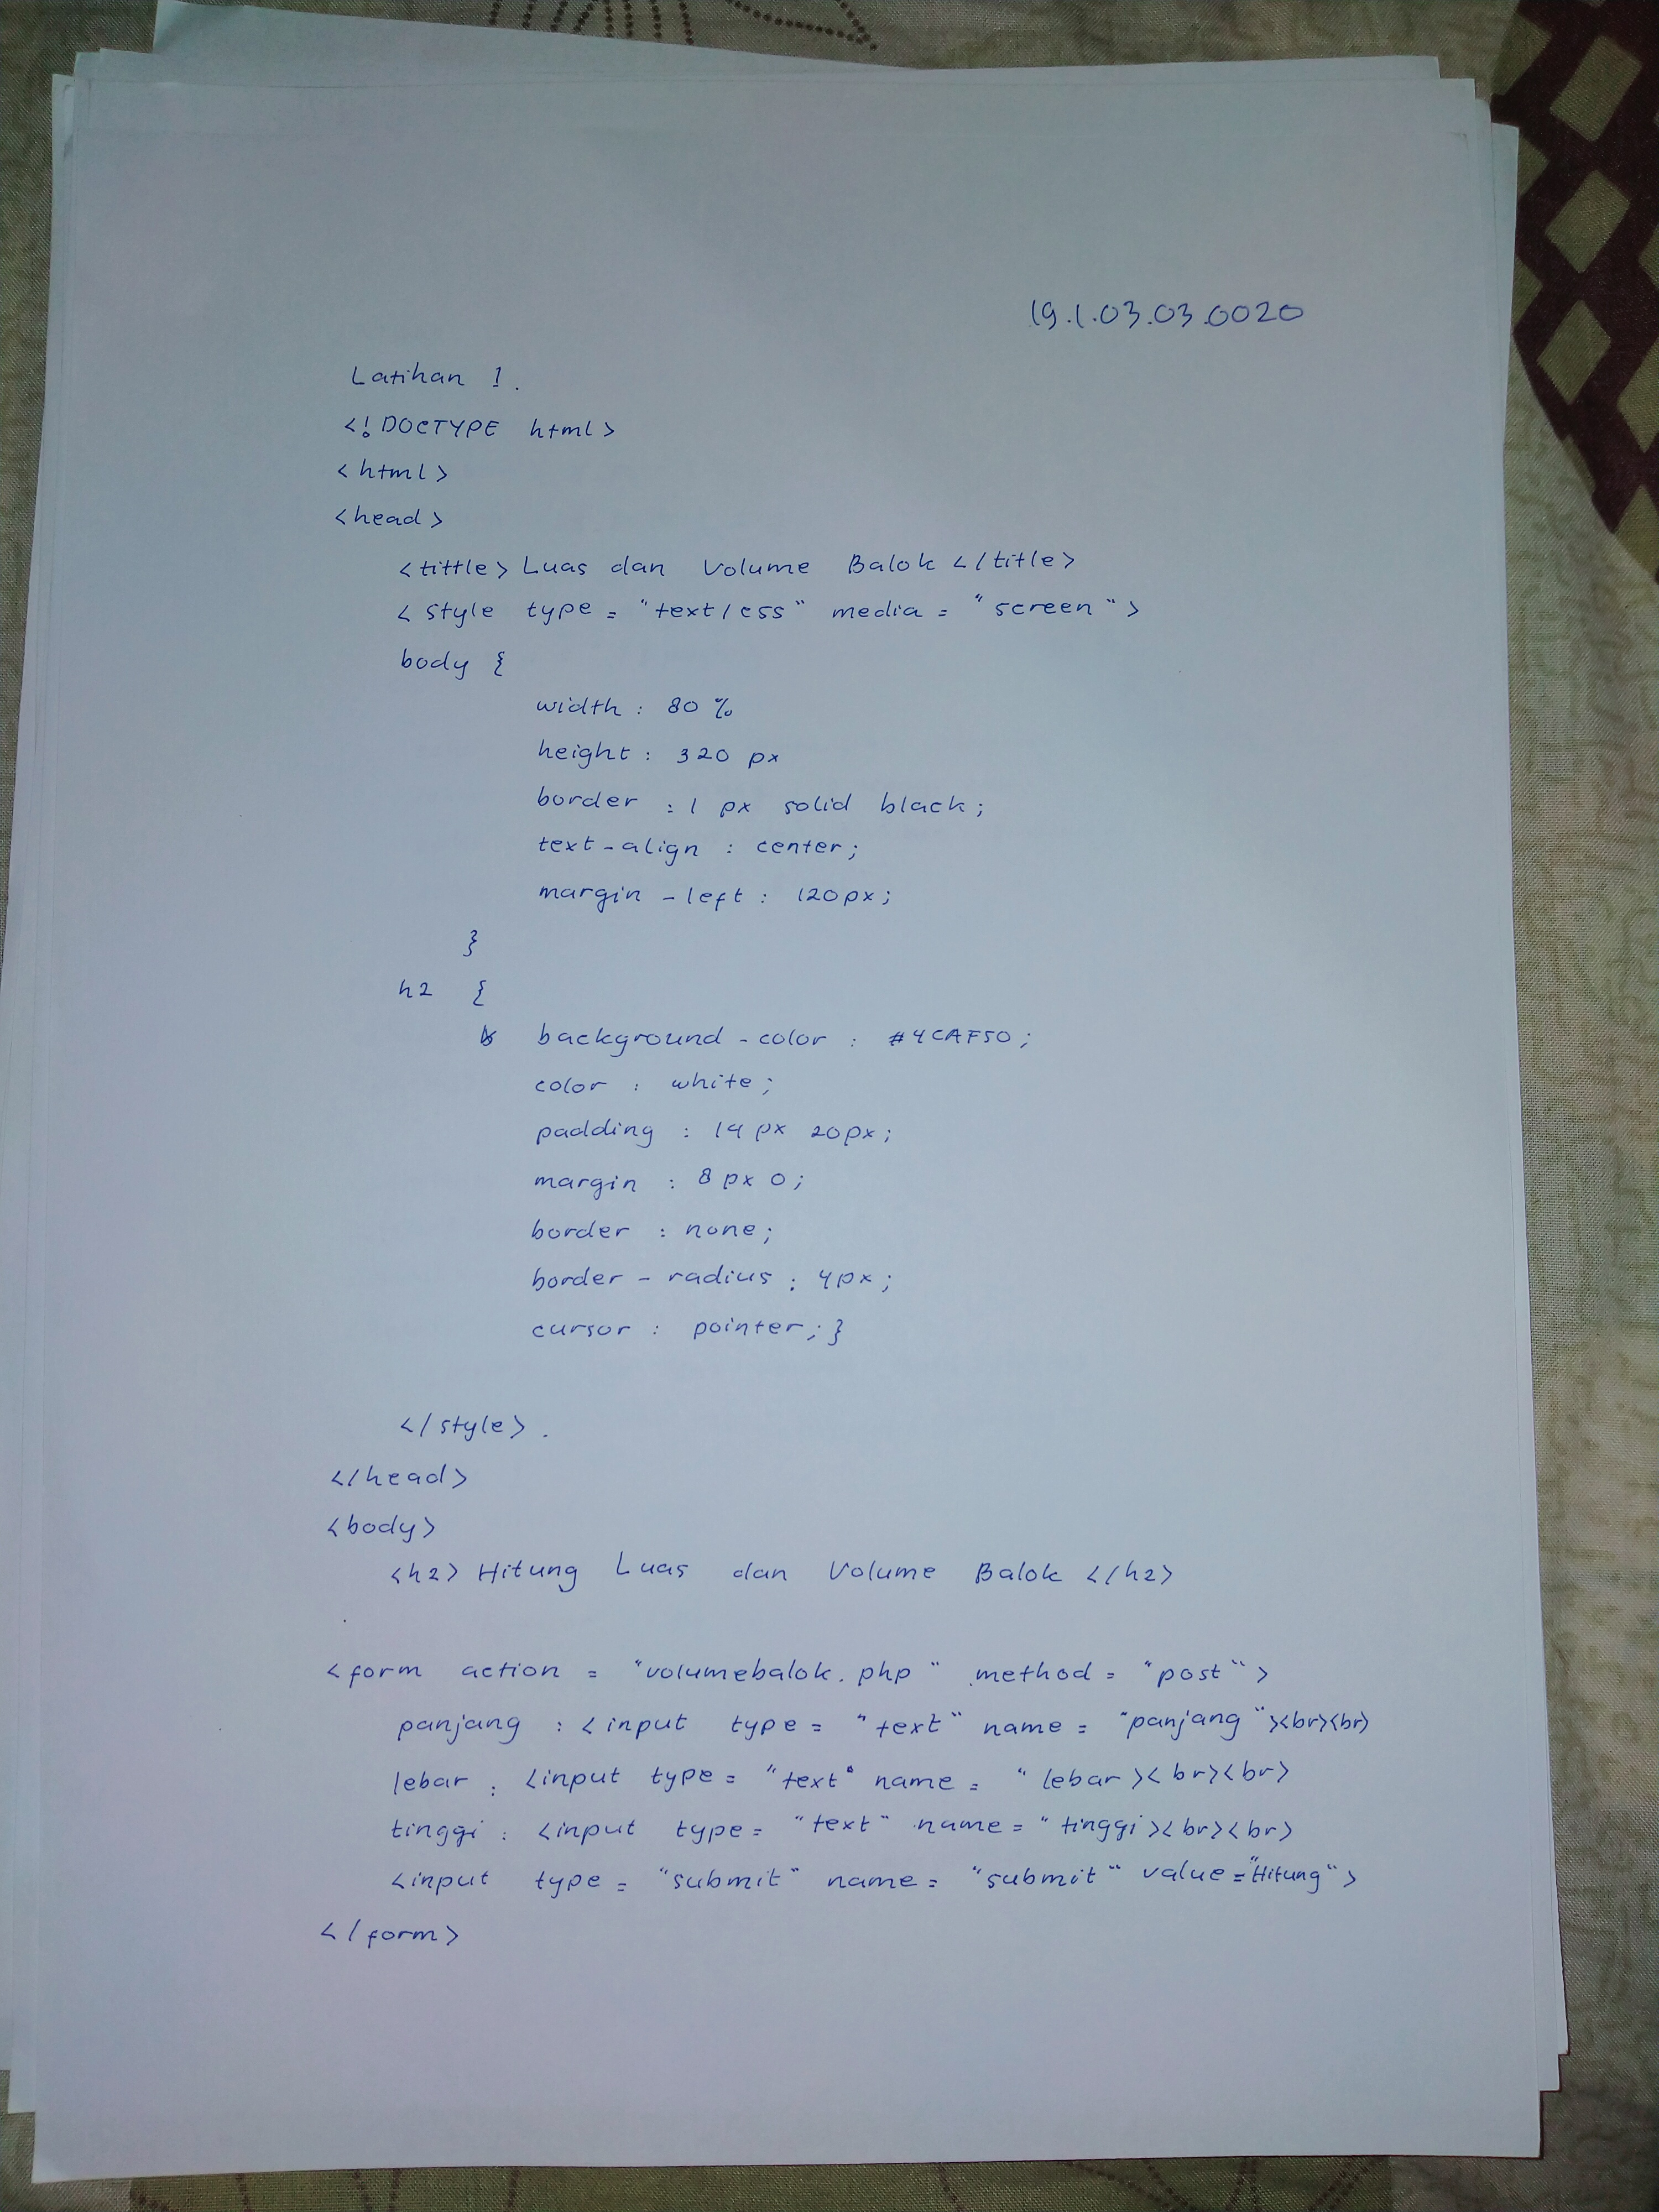 19.1.03.03.0020
Latihan 1.
<!DOCTYPE html>
<html>
<head>
<tittle> Luas dan Volume Balok </title>
<style type = "text/css" media = "screen">
body {
width : 80 %
height : 320 px
border : 1 px solid black;
text-align : center;
margin-left : 120px;
}
h2 {
background-color : #4CAF50;
color : white;
padding : 14 px 20px;
margin : 8 px 0;
border : none;
border-radius : 4px;
cursor : pointer; }
</style>.
</head>
<body>
<h2> Hitung Luas dan Volume Balok </h2>
<form action = "volumebalok.php" method = "post">
panjang : <input type = "text" name = "panjang"><br><br>
lebar : <input type = "text" name = "lebar><br><br>
tinggi : <input type = "text" name = "tinggi><br><br>
<input type = "submit" name = "submit" value = "Hitung">
</form>